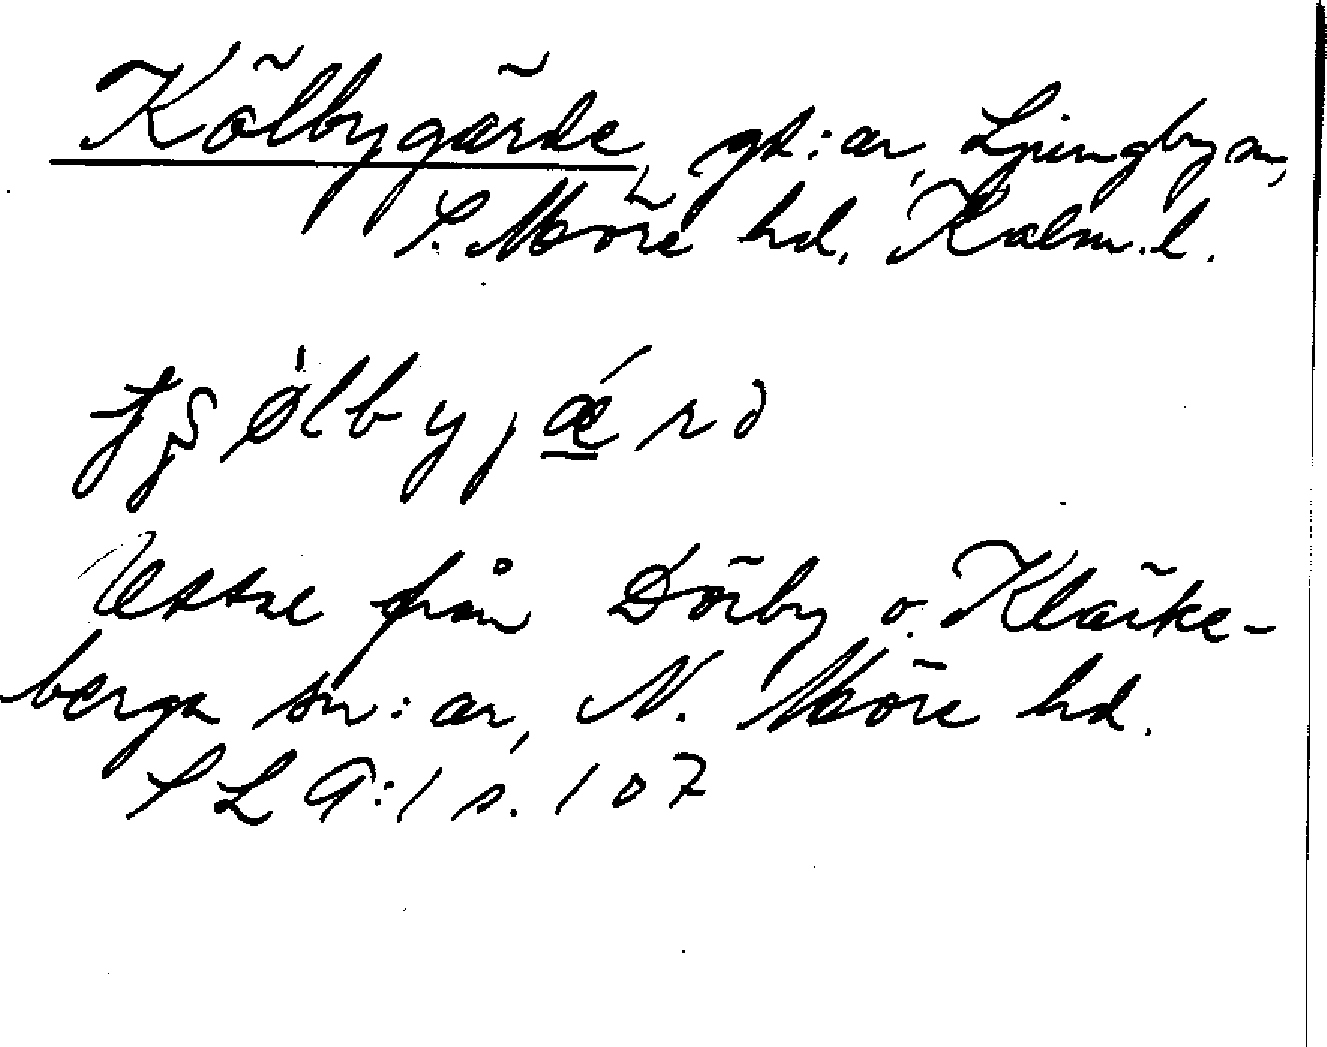 Kölbygärde, gd:ar, Ljungby sn,
S. Möre hd, Kalm. l.
Uttal från Dörby o. Kläcke-
berga sn:ar, N. Möre hd.
SL 9:1 s. 107